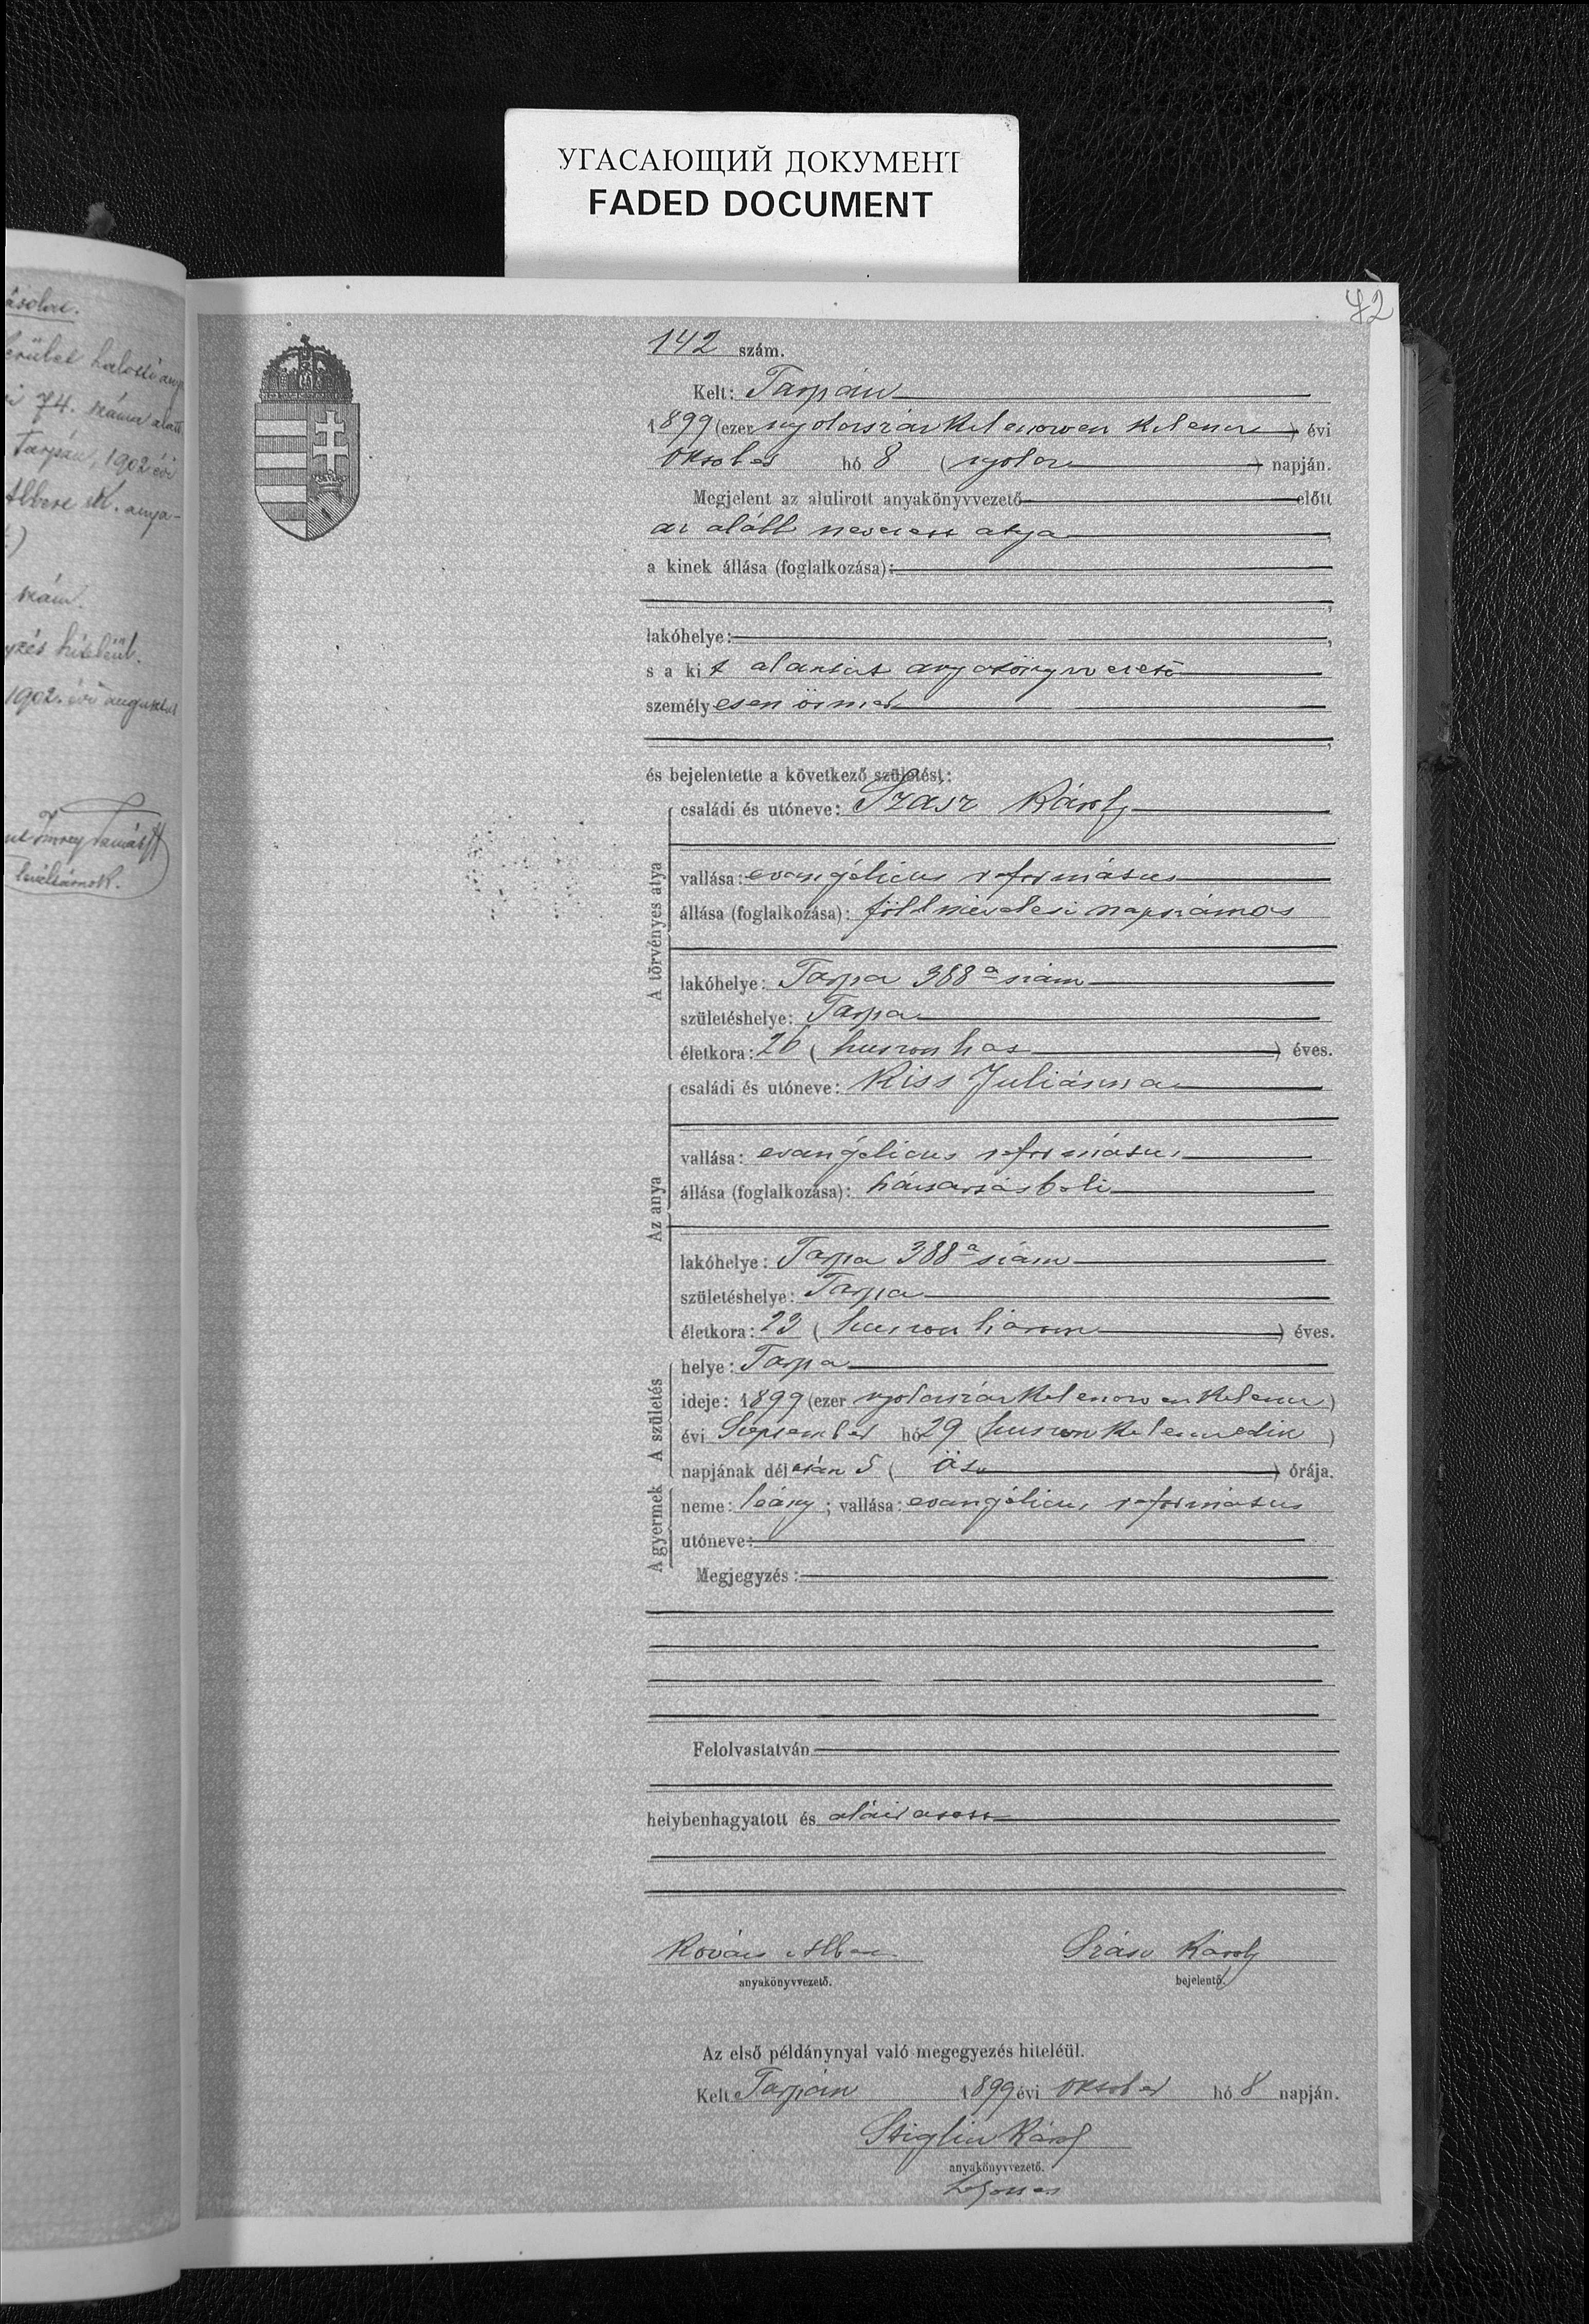 УГАСАЮЩИЙ ДОКУМЕНТ
FADED DOCUMENT
42
ásolat.
74. száma alatt
Tarpán, 1902 évi
Albert K. anya-
szám.
hiteléül.
1902. évi augusztus
Imrey Tamás
levéltárnok.
142 szám.
Kelt: Tarpán
1899 (ezer nyolcszáz kilencven kilenc) évi
október hó 8 (nyolc) napján.
Megjelent az alulirott anyakönyvvezető előtt
az alább nevezett atya,
a kinek állása (foglalkozása):
lakóhelye:
s a kit alantírt anyakönyvvezető
személyesen ösmer
és bejelentette a következő születést:
A törvényes atya
családi és utóneve: Szász Károly
vallása: evangélicus református
állása (foglalkozása): földmivelési napszámos
lakóhelye: Tarpa 388a szám
születéshelye: Tarpa
életkora: 26 (huszonhat) éves.
Az anya
családi és utóneve: Kiss Juliánna
vallása: evangélicus református
állása (foglalkozása): háztartásbeli
lakóhelye: Tarpa 388a szám
születéshelye: Tarpa
életkora: 23 (huszon három) éves.
A születés
helye: Tarpa
ideje: 1899 (ezer nyolcszáz kilencven kilenc)
évi September hó 29 (huszon kilencedik)
napjának délután 5 (öt) órája.
A gyermek
neme: leány; vallása: evangélicus református
utóneve:
Megjegyzés:
Felolvastatván
helybenhagyatott és aláiratott
Kovács Albert Szász Károly
anyakönyvvezető. bejelentő.
Az első példánynyal való megegyezés hiteléül.
Kelt Tarpán 1899 évi október hó 8 napján.
Stiglin Károly
anyakönyvvezető.
helyettes